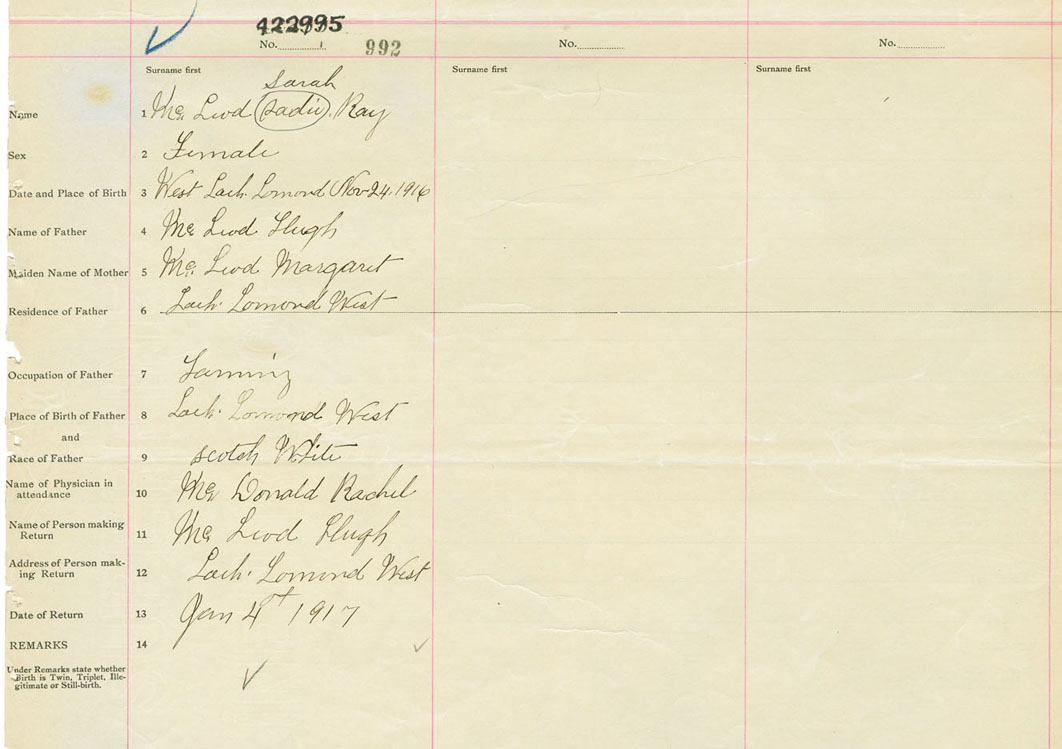 422995
No. 992
No.
No.
Surname first
Surname first
Surname first
Sarah
Name 1 Mc Leod Sadie. Ray
Sex 2 Female
Date and Place of Birth 3 West Loch. Lomond Nov 24. 1916
Name of Father 4 Mc Leod Hugh
Maiden Name of Mother 5 Mc Leod Margaret
Residence of Father 6 Loch. Lomond West
Occupation of Father 7 Farming
Place of Birth of Father 8 Loch. Lomond West
and
Race of Father 9 scotch White
Name of Physician in
attendance 10 Mc Donald Rachel
Name of Person making
Return 11 Mc Leod Hugh
Address of Person mak-
ing Return 12 Loch. Lomond West
Date of Return 13 Jan 4t 1917
REMARKS 14
Under Remarks state whether
Birth is Twin, Triplet, Ille-
gitimate or Still-birth.